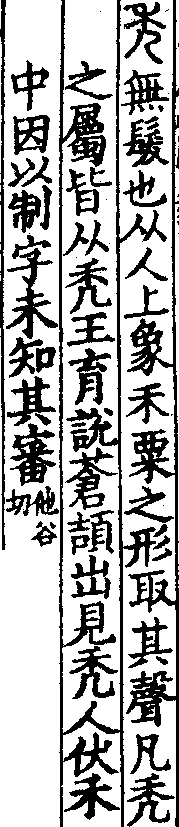 秃無髮也从人上象禾粟之形取其聲凡秃
之屬皆从秃王育說蒼頡出見秃人伏禾
中因以制字未知其審他谷切